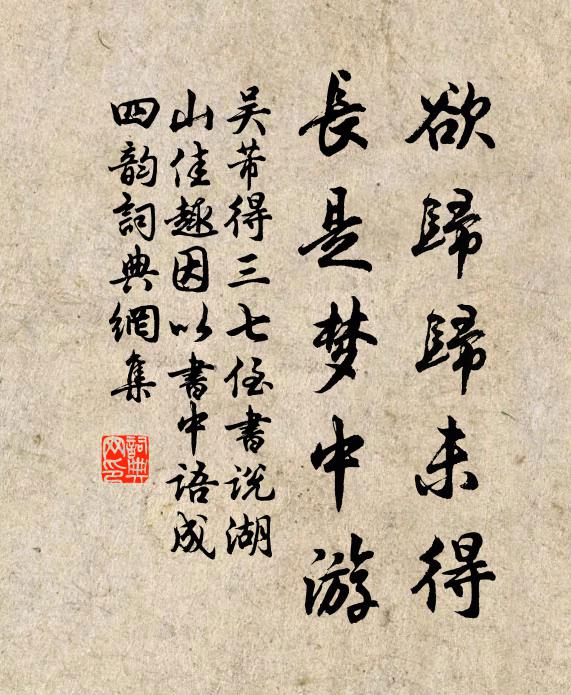 欲歸歸未得
長是梦中游
吴芾得三七侄書说湖
山佳趣因以書中語成
四韵詞典網集
詞典
网印